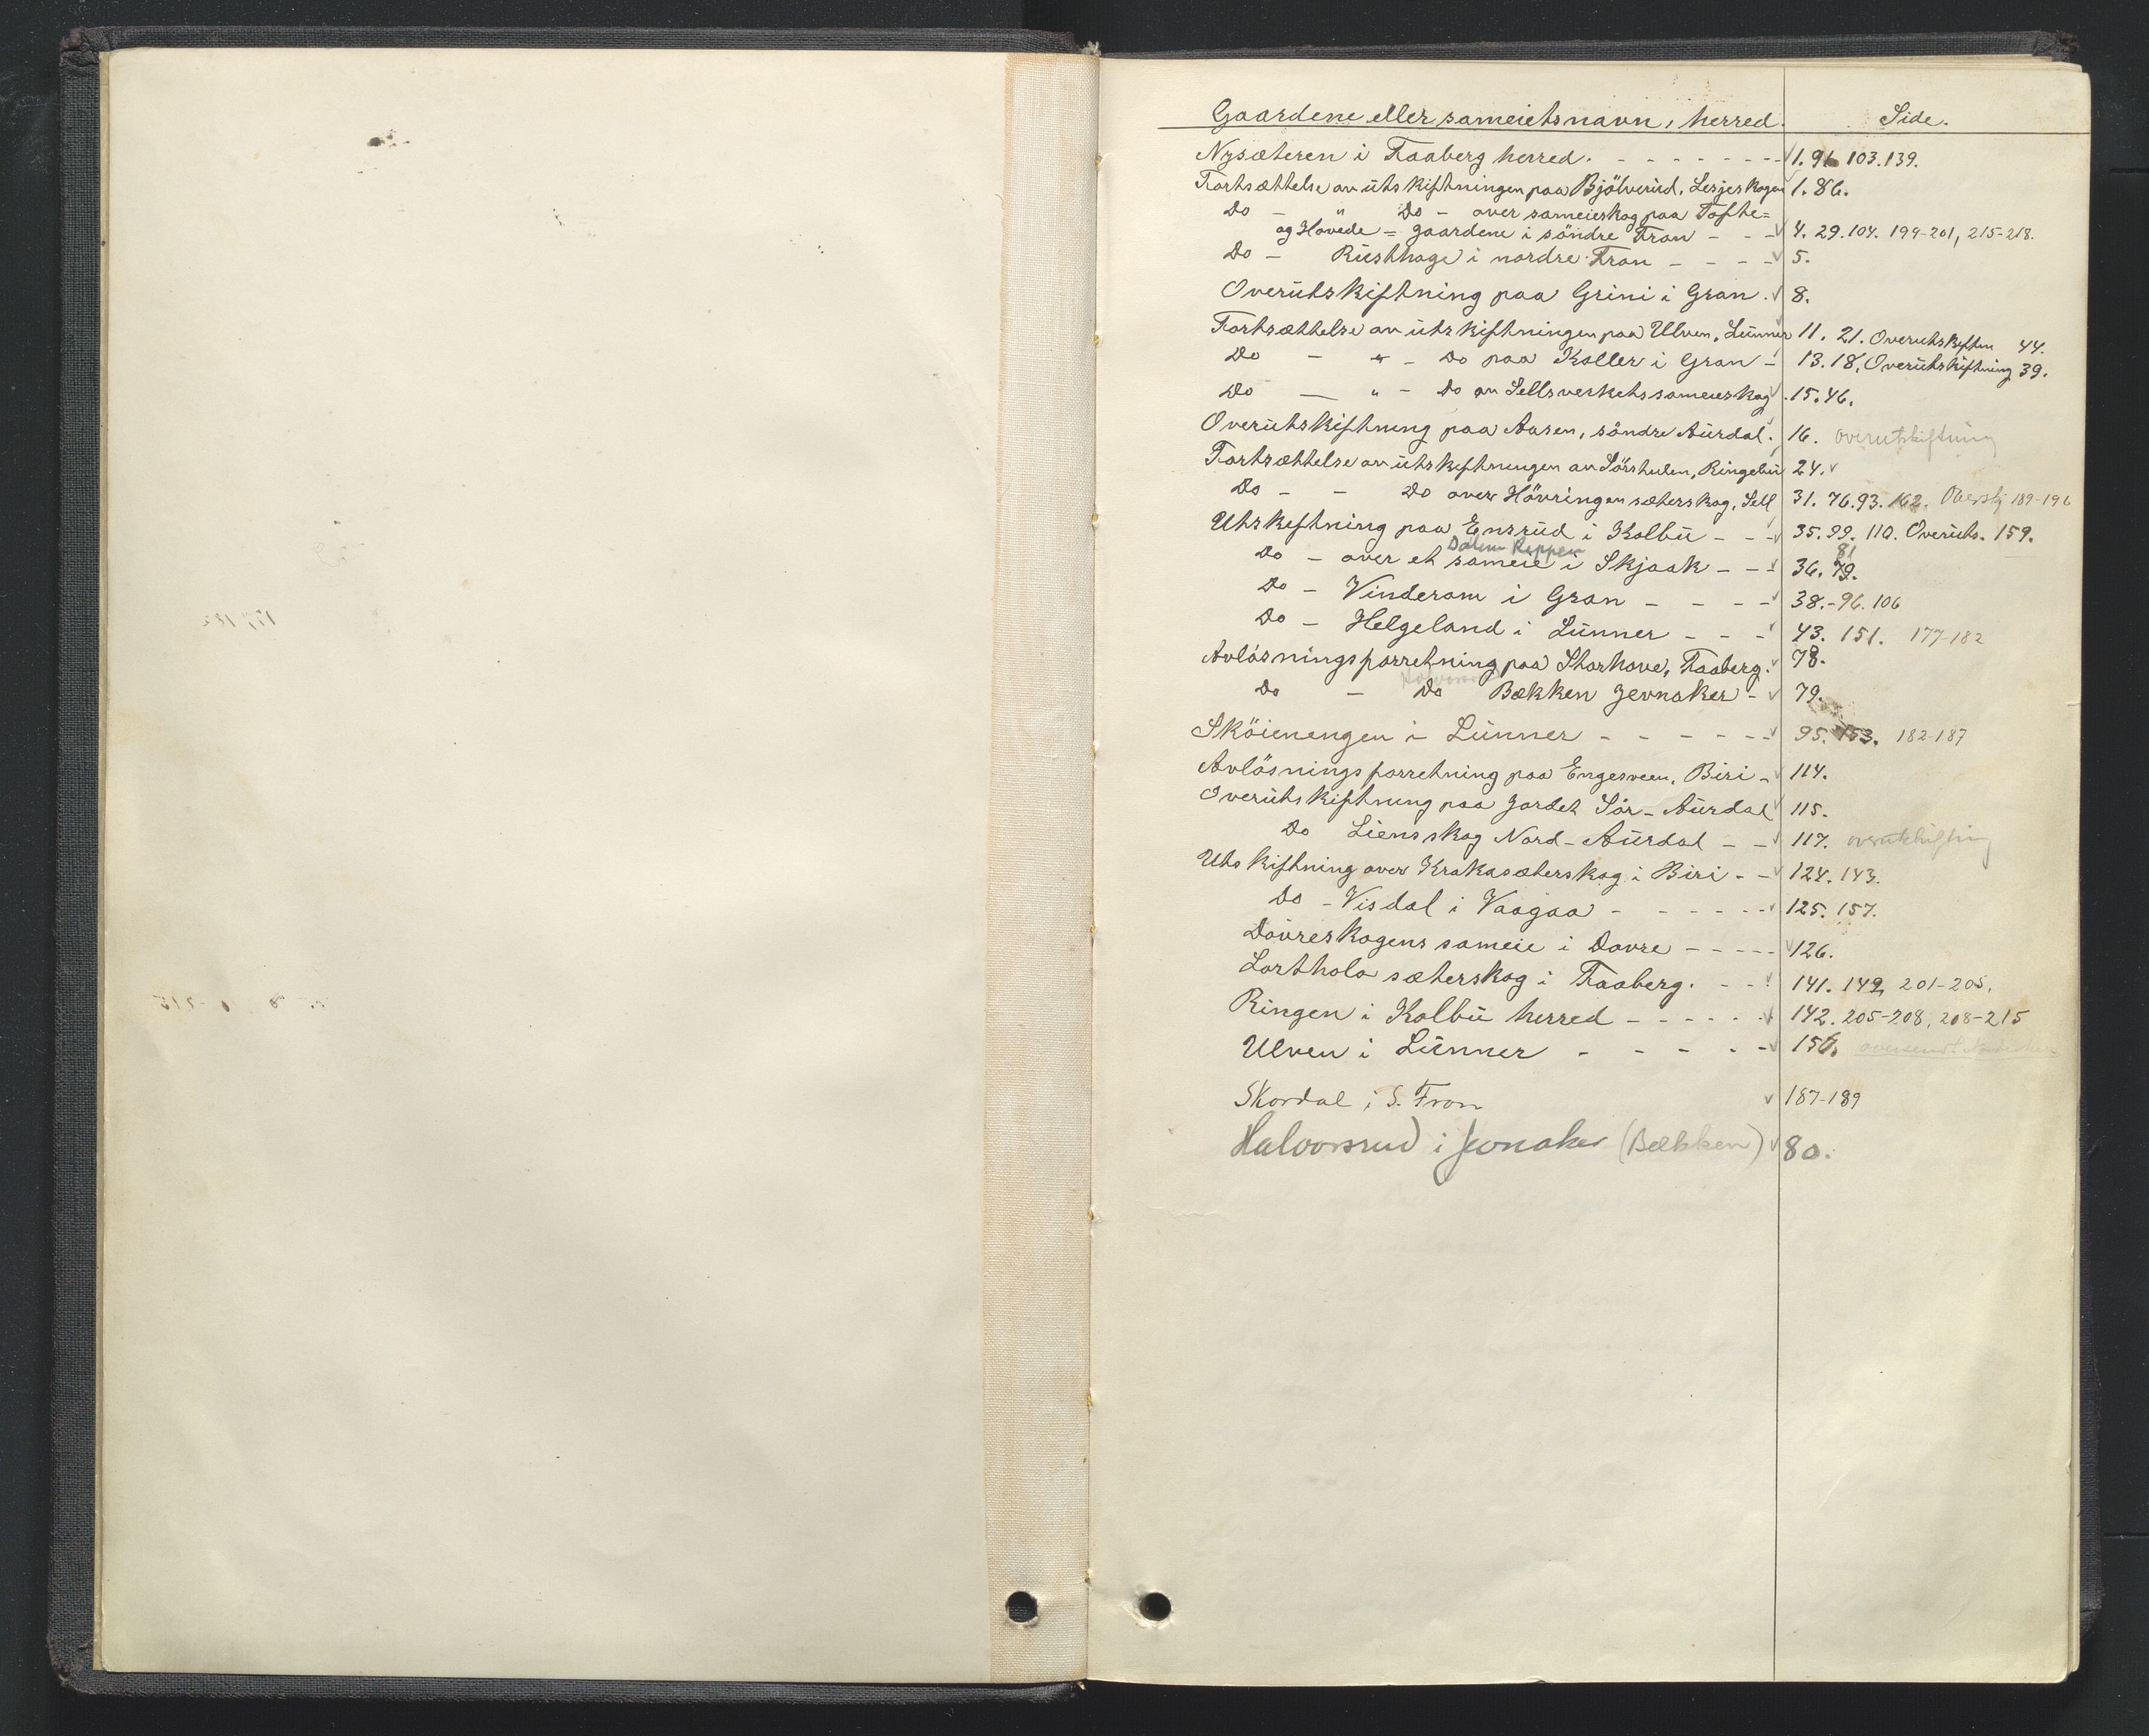 Gaardene eller sameiets navn, herred. Side.
Nysæteren i Faaberg herred. - - - - - - - - 1. 91. 103. 139.
Fortsættelse av utskiftningen paa Bjölverud, Lesjeskogen 1. 86.
Do - " Do - over sameieskog paa Tofte=
og Hovede = gaardene i söndre Fron - - - 4. 29. 104. 199-201, 215-218.
Do - Rusthage i nordre Fron - - - - 5.
Overutskiftning paa Grini i Gran. 8.
Fortsættelse av utskiftningen paa Ulven, Lunner 11. 21. Overutskiften 44.
Do - " - Do paa Koller i Gran - 13. 18. Overutskiftning 39.
Do - " - Do av Sellsverkets sameieskog 15. 46.
Overutskiftning paa Aasen, söndre Aurdal. 16. overutskiftning
Fortsættelse av utskiftningen av Sörstulen, Ringebu 24.
Do - - Do over Hövringen sæterskog, Sell 31. 76. 93. 162. Oversk 189-196
Utskiftning paa Ensrud i Kolbu - - - 35. 99. 110. Overuts. 159.
Do - over et sameie i Skjaak - - - 36. 79. 81
Do - Vinderom i Gran - - - - 38. - 96. 106
Do - Helgeland i Lunner - - - 43. 151. 177-182
Avlösningsforretning paa Storhove, Faaberg. 78.
Do - Do Bækken Jevnaker - 79.
Sköienengen i Lunner - - - - - - 95. 153. 182-187
Avlösningsforretning paa Engesveen, Biri - 114.
Overutskiftning paa Jordet Sör-Aurdal 115.
Do Liens skog Nord-Aurdal - - 117. overutskiftning
Utskiftning over Krakasæterskog i Biri - - 124. 143.
Do - Visdal i Vaagaa - - - - - - 125. 157.
Dovreskogens sameie i Dovre - - - - 126.
Lorthola sæterskog i Faaberg. - - 141. 149, 201-205.
Ringen i Kolbu herred - - - - - 142. 205-208, 208-215
Ulven i Lunner - - - - - 156.
Skordal i S. Fron 187-189
Halvorsrud i Jevnaker (Bækken) 80.